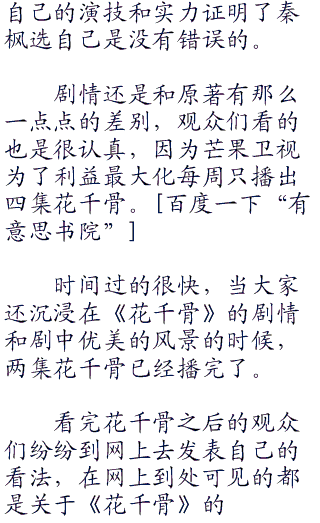 自己的演技和实力证明了秦
枫选自己是没有错误的。
剧情还是和原著有那么
一点点的差别，观众们看的
也是很认真，因为芒果卫视
为了利益最大化每周只播出
四集花千骨。[百度一下“有
意思书院”]
时间过的很快，当大家
还沉浸在《花千骨》的剧情
和剧中优美的风景的时候，
两集花千骨已经播完了。
看完花千骨之后的观众
们纷纷到网上去发表自己的
看法，在网上到处可见的都
是关于《花千骨》的